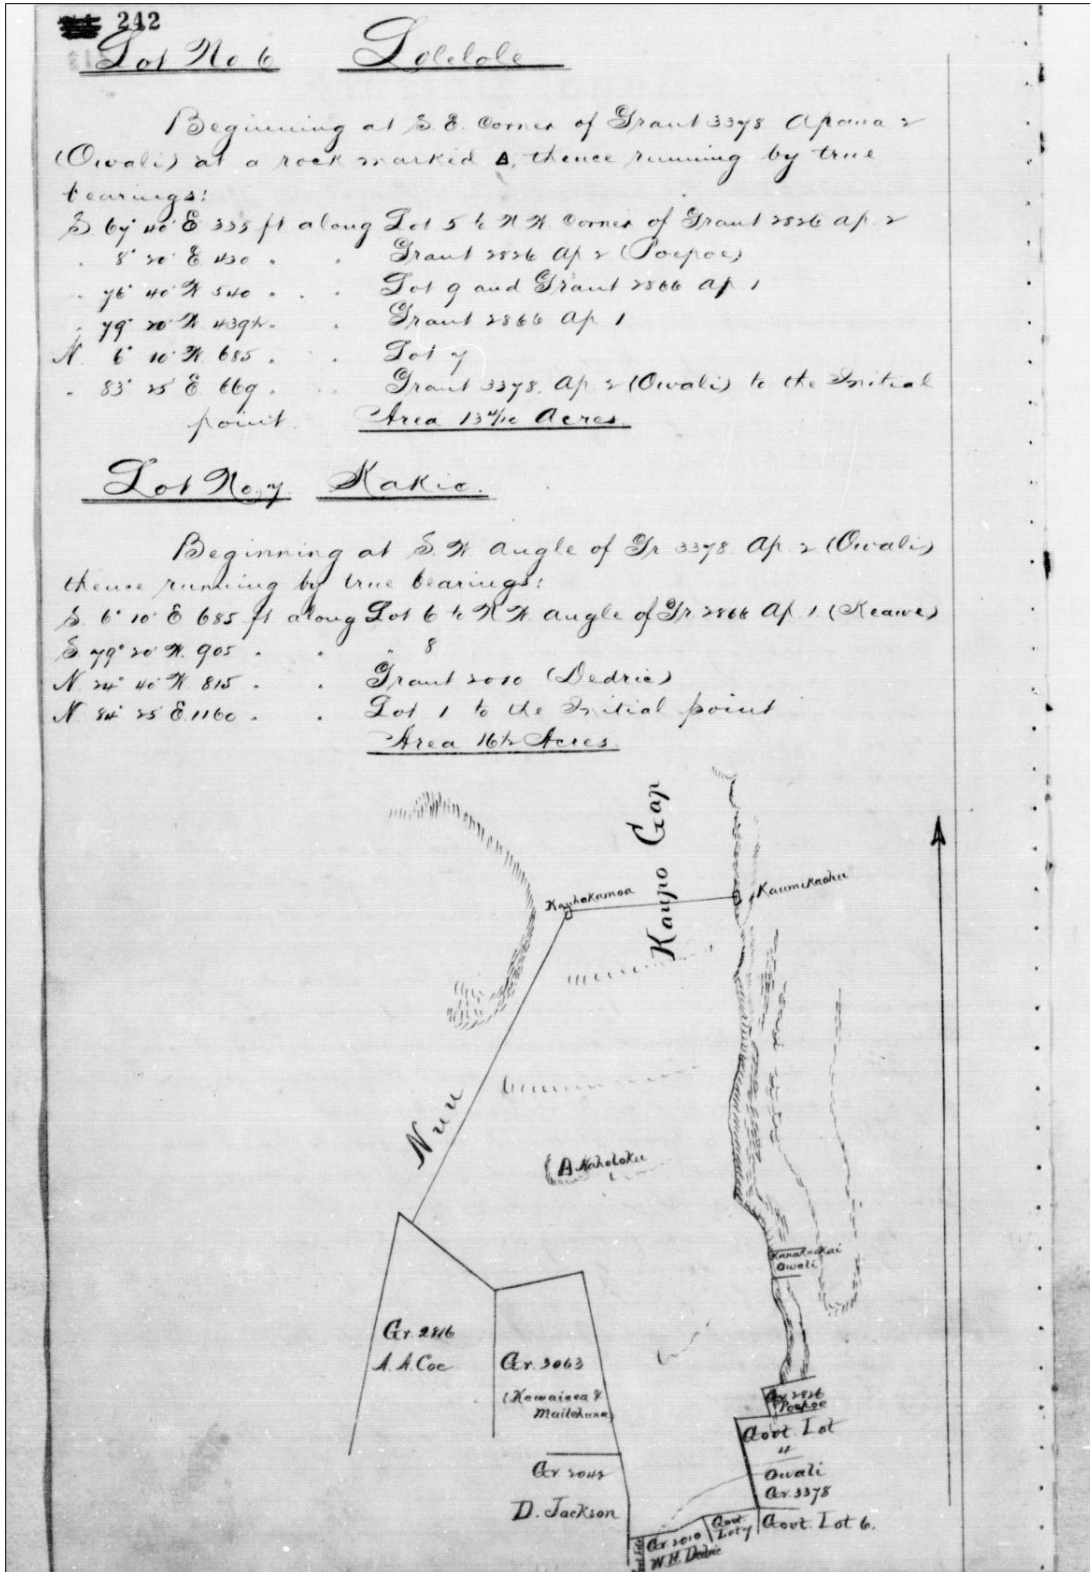 242
Lot No. 6 Lolelole
Beginning at S. E. Corner of Grant 3378 Apana 2
(Owali) at a rock marked Δ, thence running by true
bearings:
S 67° 40' E 335 ft along Lot 5 to N. W. Corner of Grant 2826 Ap. 2
. 8° 20' E 430 . . Grant 2826 Ap 2 (Poepoe)
. 76° 40' W 540 . . . Lot 9 and Grant 2866 Ap 1
. 79° 20' W. 439½ . . Grant 2866 Ap 1
N. 6° 10' W. 685 . . Lot 7
. 83° 25' E 669 . . Grant 3378. Ap. 2 (Owali) to the Initial
point. Area Acres.
Lot No. 7. Kakio.
Beginning at S. W. Angle of Gr. 3378. Ap. 2 (Owali)
thense running by true bearings:
S. 6° 10' E 685 ft along Lot 6 to N. W. Angle of Gr. 2866 Ap. 1. (Keawe)
S. 79° 20' W. 905 . . . 8
N. 24° 40' W. 815 . . Grant 2010 (Dedric)
N. 84° 25' E. 1160 . . Lot 1 to the Initial point
Area 16½ Acres.
Kaupo Gap
Kauhokamoa
Kaumikaohu
Nuu
Δ Naholoku
Kanakaokai
Owali
Gr. 2816
A. A. Coe
Gr. 3063
(Kawaieea &
Mailehuna)
Gr. 2826
Poepoe
Govt. Lot
4
Owali
Gr. 3378
Gr 2042
D. Jackson
Gr. 2010
W. H. Dedric
Govt.
Lot 7
Govt. Lot 6.